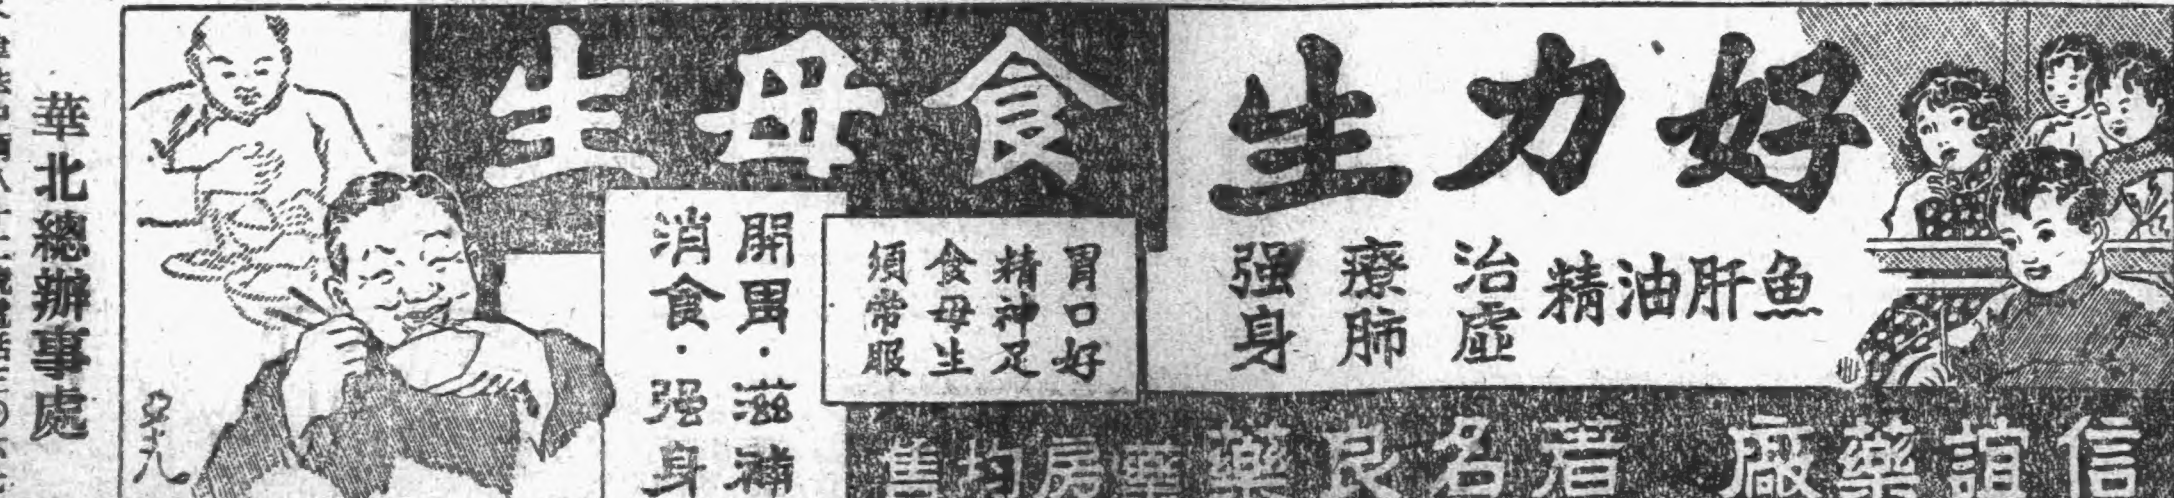 好力生
魚肝油精
治虛
療肺
强身
食母生
胃口好
精神足
食母生
須常服
開胃·滋補
消食·强身
信誼藥廠 著名良藥 藥房均售
華北總辦事處